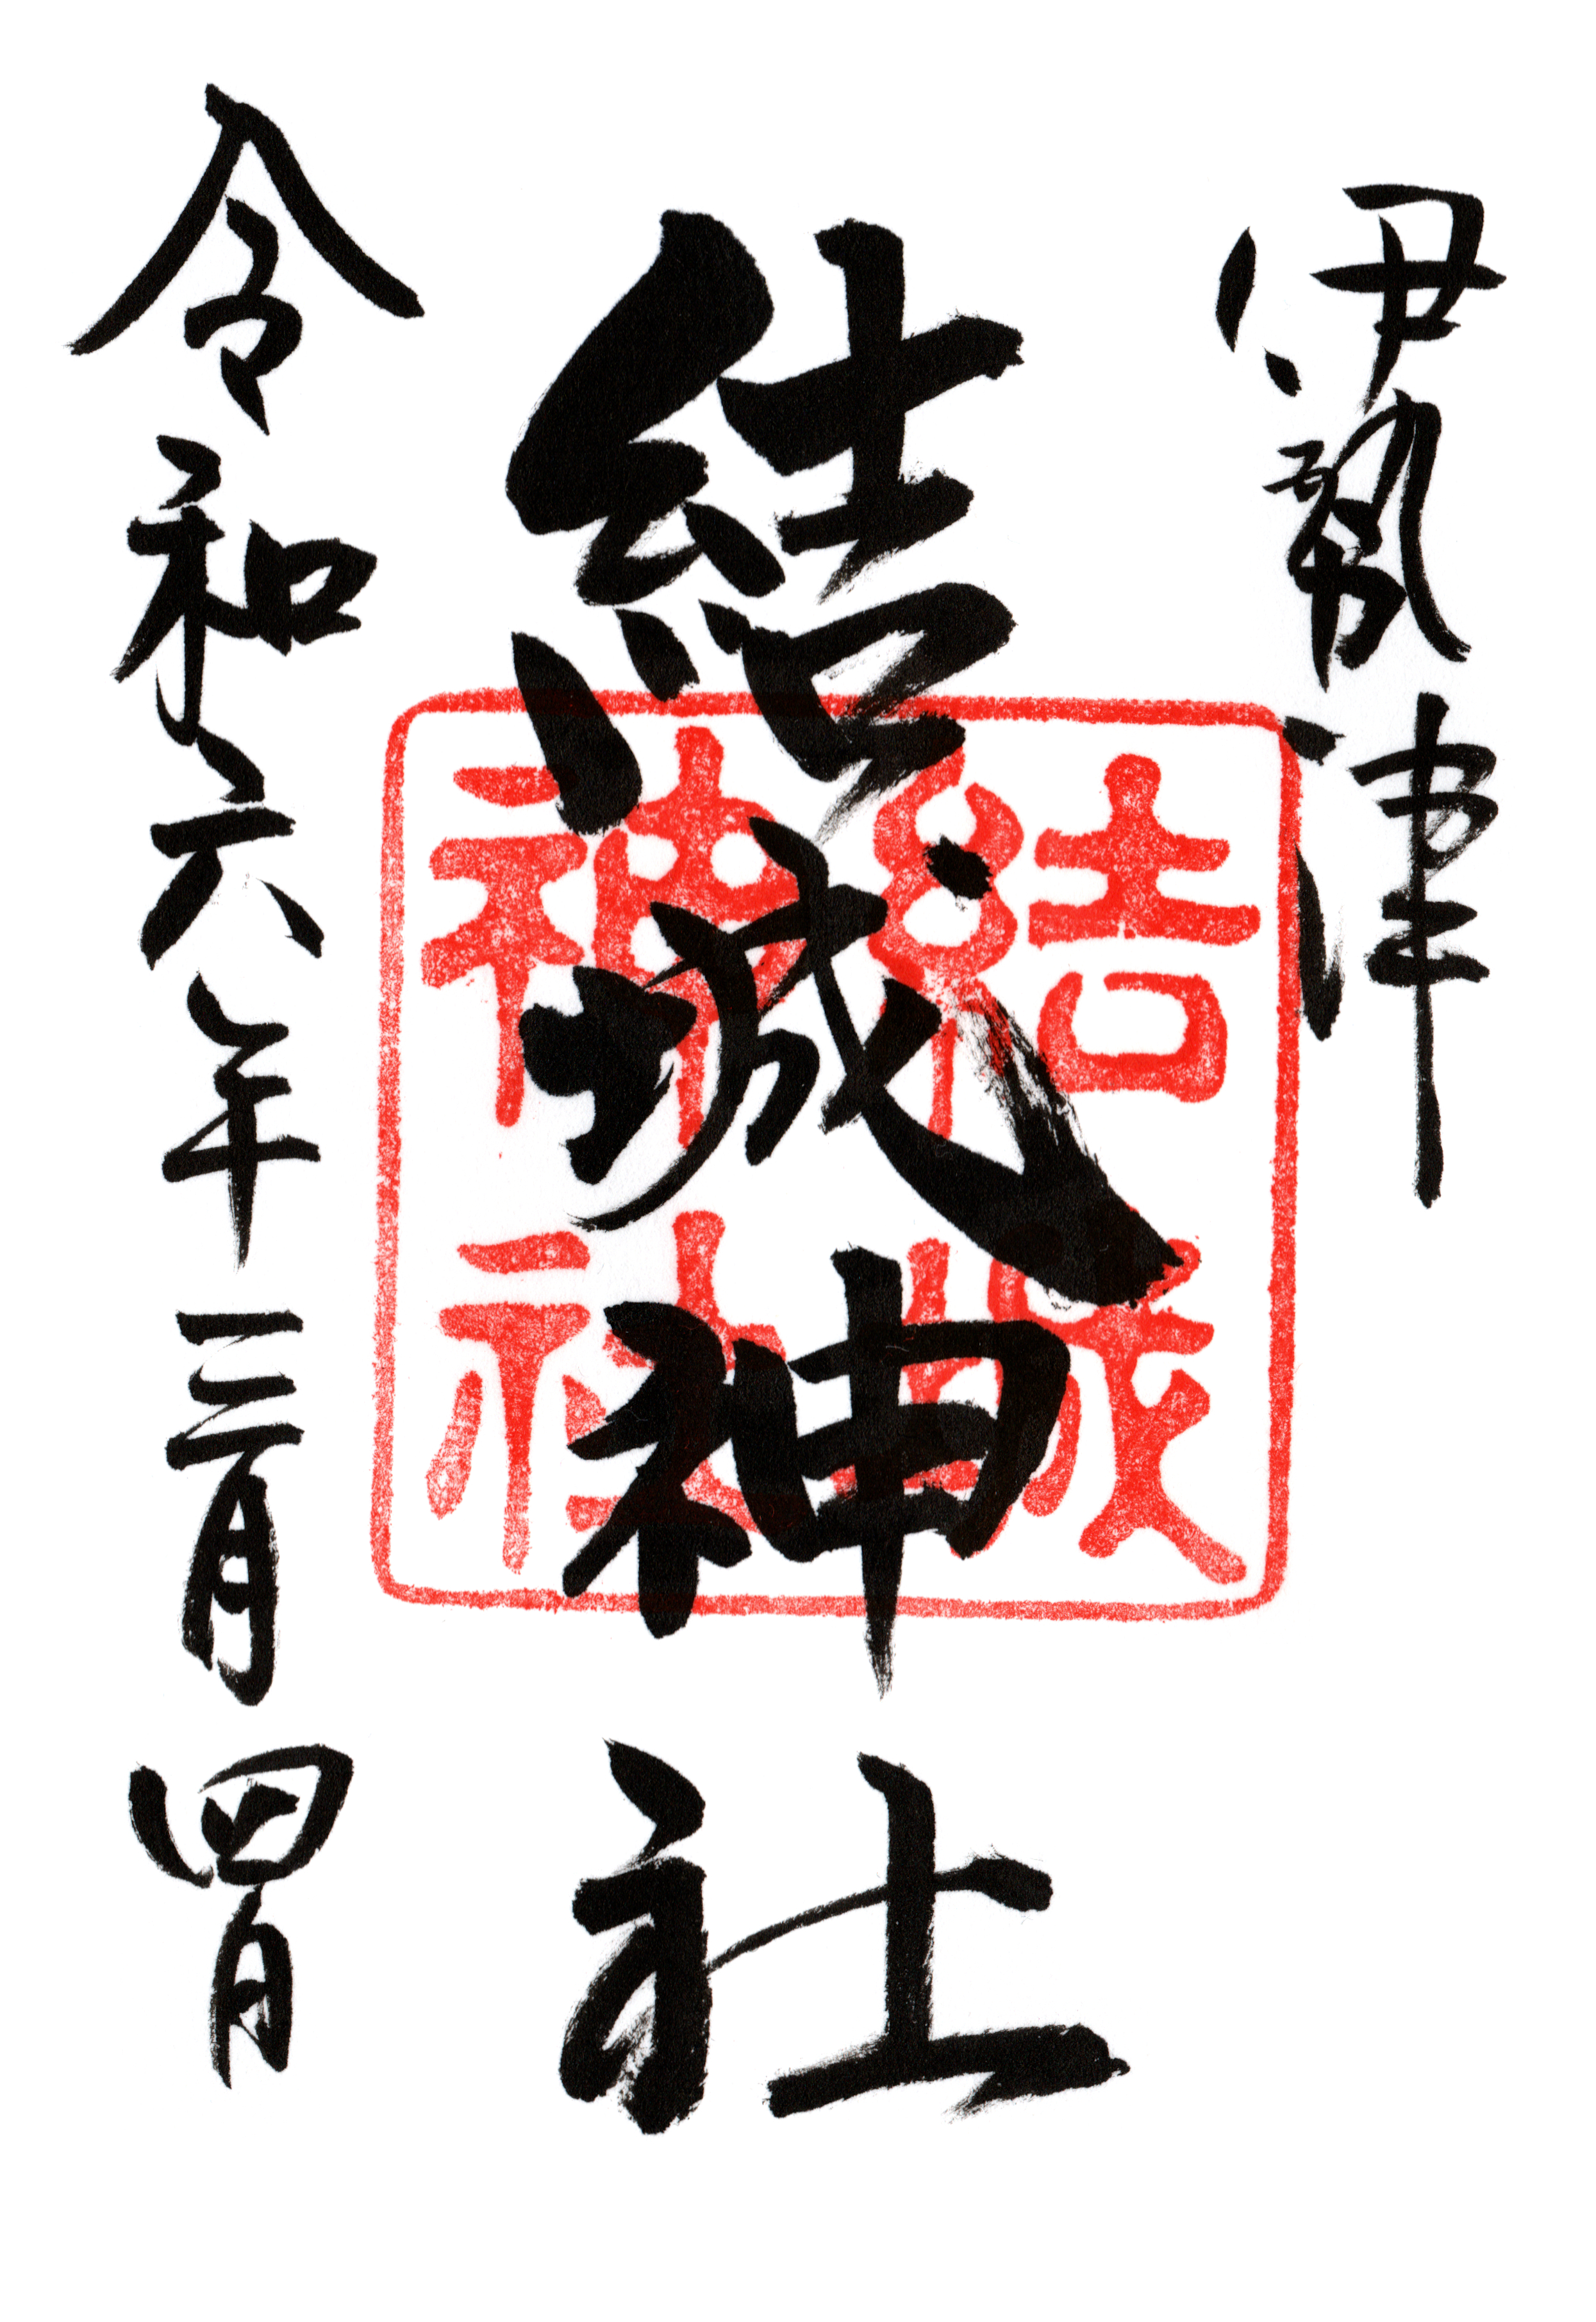 伊勢津
結城神社
結城神社
令和六年三月四日